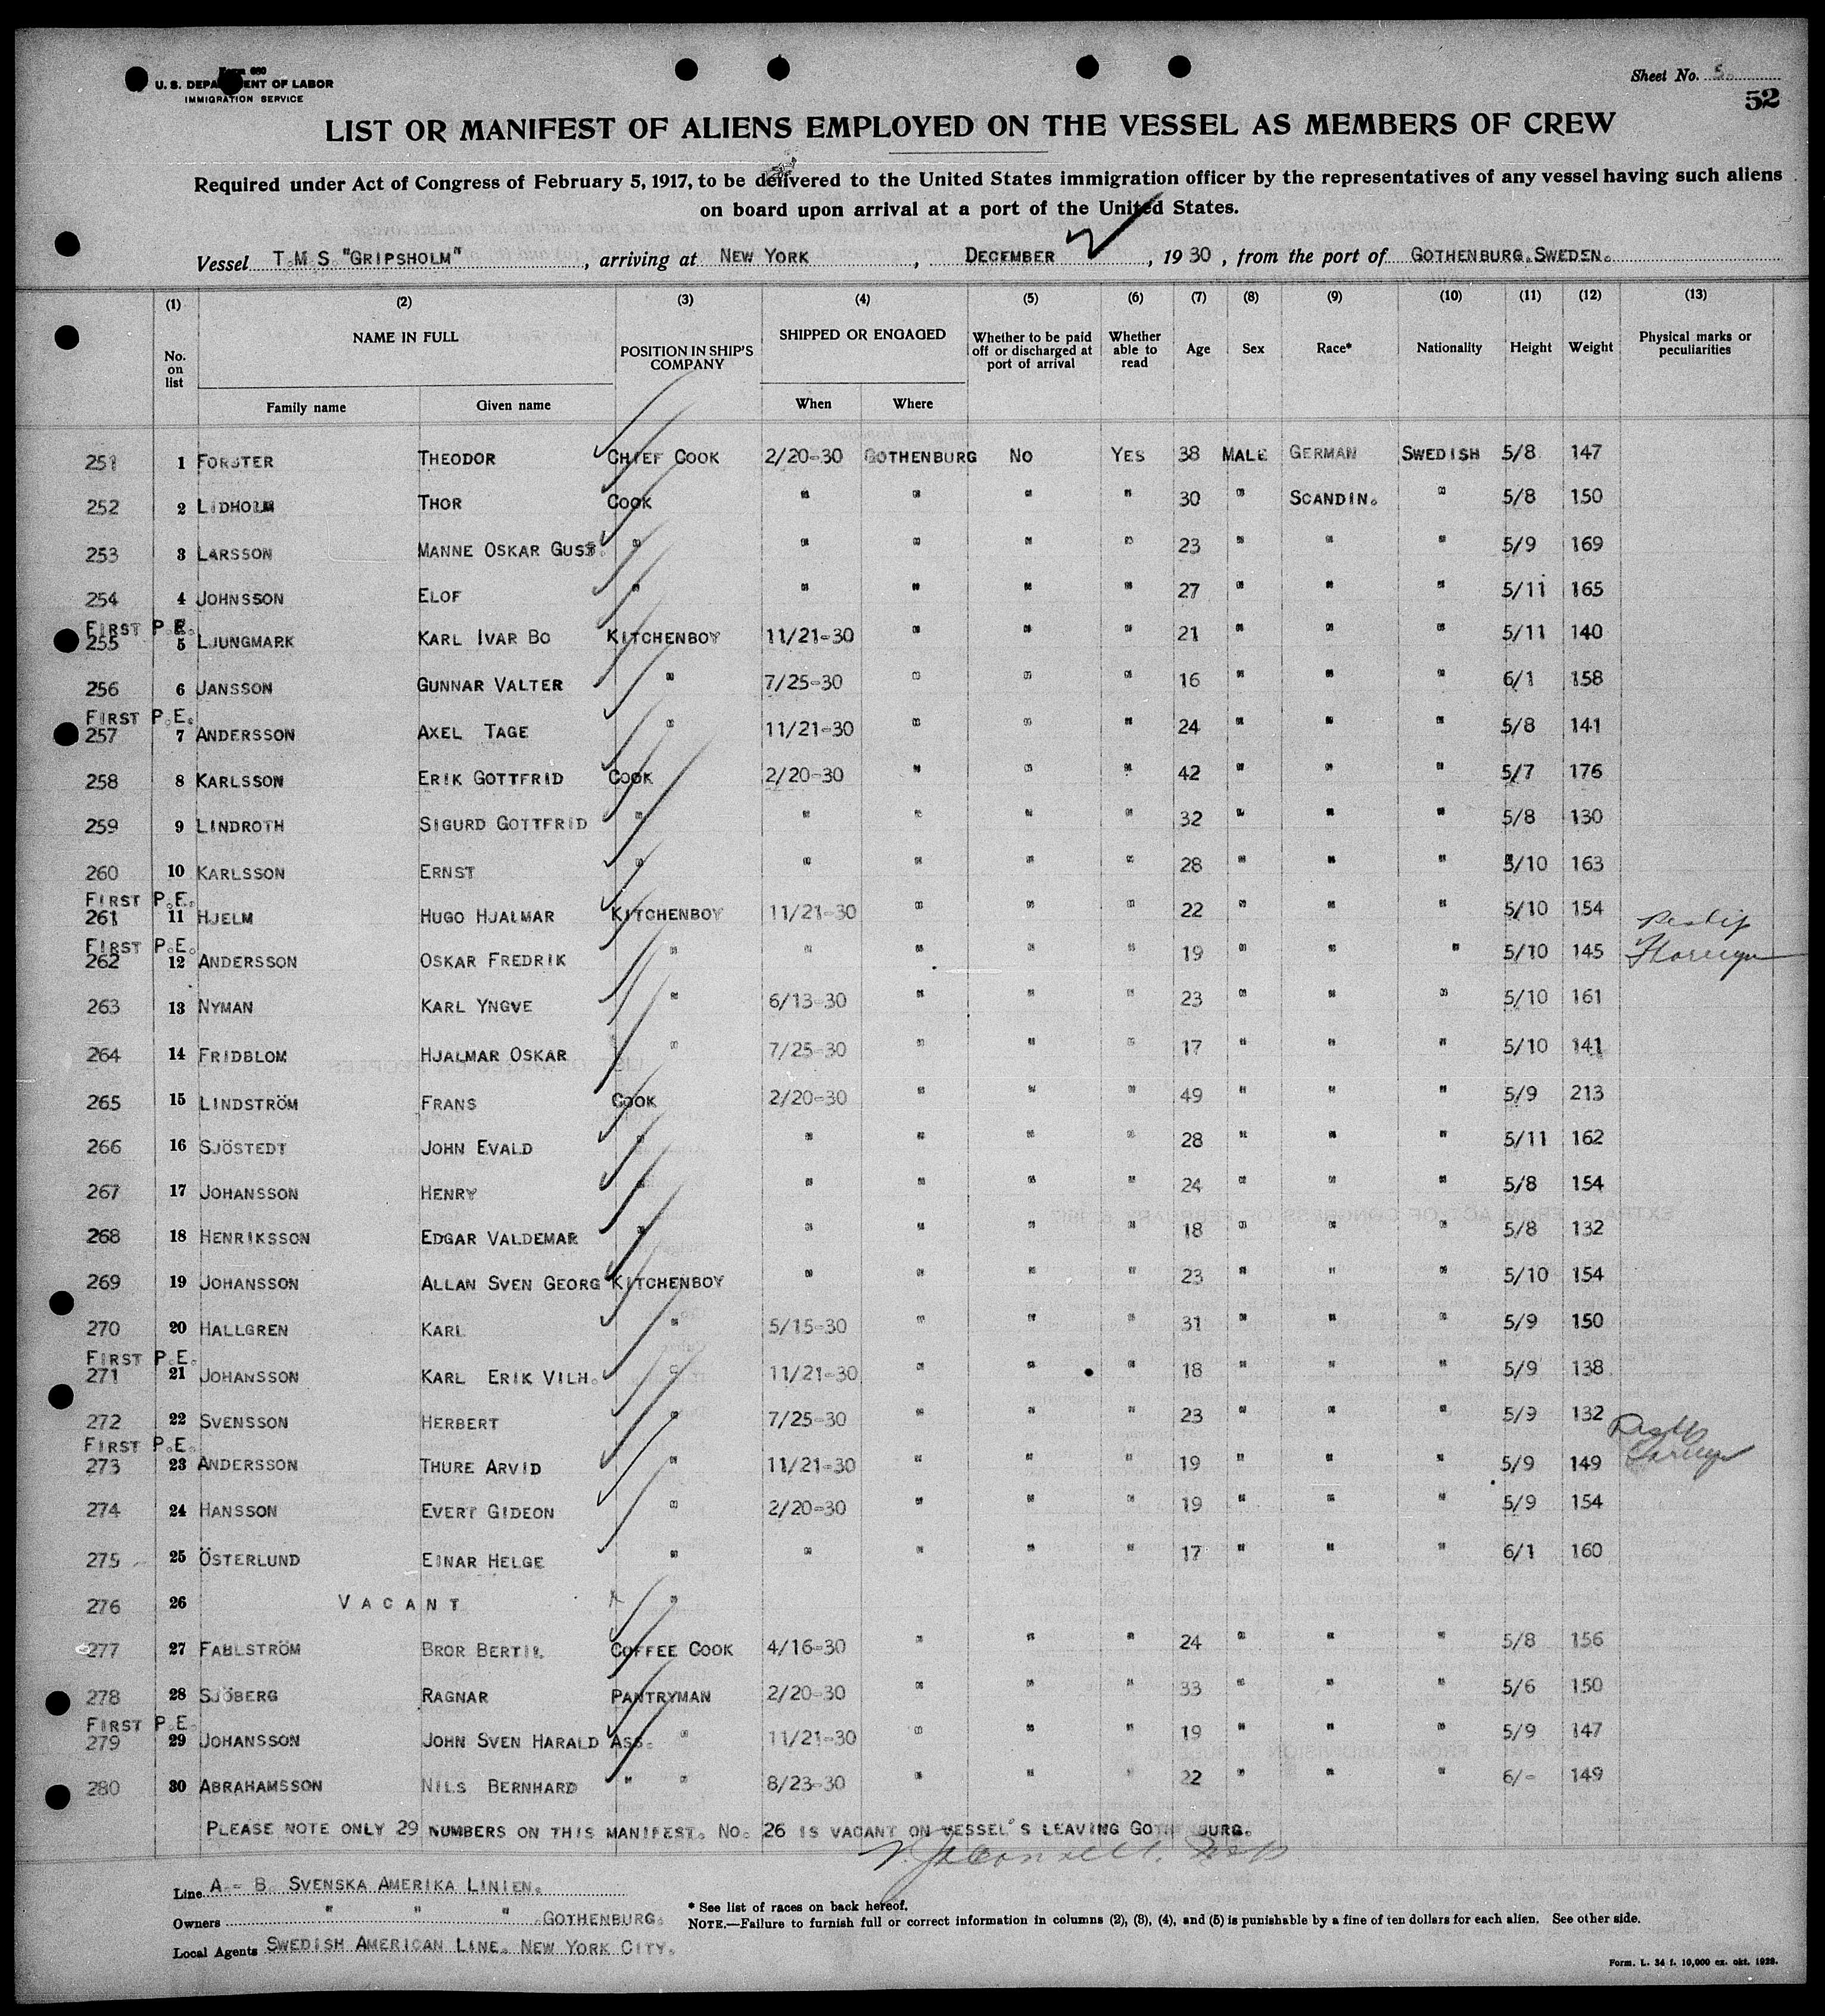 Form 680
U. S. DEPARTMENT OF LABOR
IMMIGRATION SERVICE
Sheet No.
52
LIST OR MANIFEST OF ALIENS EMPLOYED ON THE VESSEL AS MEMBERS OF CREW
Required under Act of Congress of February 5, 1917, to be delivered to the United States immigration officer by the representatives of any vessel having such aliens
on board upon arrival at a port of the United States.
Vessel T.M.S. "GRIPSHOLM", arriving at NEW YORK, DECEMBER, 1930, from the port of GOTHENBURG. SWEDEN.
(1) (2) (3) (4) (5) (6) (7) (8) (9) (10) (11) (12) (13)
No. on list NAME IN FULL POSITION IN SHIP'S COMPANY SHIPPED OR ENGAGED Whether to be paid off or discharged at port of arrival Whether able to read Age Sex Race* Nationality Height Weight Physical marks or peculiarities
Family name Given name When Where
251 1 FORSTER THEODOR CHIEF COOK 2/20-30 GOTHENBURG NO YES 38 MALE GERMAN SWEDISH 5/8 147
252 2 LIDHOLM THOR COOK " " " " 30 " SCANDIN. " 5/8 150
253 3 LARSSON MANNE OSKAR GUST. " " " " " 23 " " " 5/9 169
254 4 JOHNSSON ELOF " " " " " 27 " " " 5/11 165
FIRST P.E.
255 5 LJUNGMARK KARL IVAR BO KITCHENBOY 11/21-30 " " " 21 " " " 5/11 140
256 6 JANSSON GUNNAR VALTER " 7/25-30 " " " 16 " " " 6/1 158
FIRST P.E.
257 7 ANDERSSON AXEL TAGE " 11/21-30 " " " 24 " " " 5/8 141
258 8 KARLSSON ERIK GOTTFRID COOK 2/20-30 " " " 42 " " " 5/7 176
259 9 LINDROTH SIGURD GOTTFRID " " " " " 32 " " " 5/8 130
260 10 KARLSSON ERNST " " " " " 28 " " " 5/10 163
FIRST P.E.
261 11 HJELM HUGO HJALMAR KITCHENBOY 11/21-30 " " " 22 " " " 5/10 154
FIRST P.E.
262 12 ANDERSSON OSKAR FREDRIK " " " " " 19 " " " 5/10 145
263 13 NYMAN KARL YNGVE " 6/13-30 " " " 23 " " " 5/10 161
264 14 FRIDBLOM HJALMAR OSKAR " 7/25-30 " " " 17 " " " 5/10 141
265 15 LINDSTRÖM FRANS COOK 2/20-30 " " " 49 " " " 5/9 213
266 16 SJÖSTEDT JOHN EVALD " " " " " 28 " " " 5/11 162
267 17 JOHANSSON HENRY " " " " " 24 " " " 5/8 154
268 18 HENRIKSSON EDGAR VALDEMAR " " " " " 18 " " " 5/8 132
269 19 JOHANSSON ALLAN SVEN GEORG KITCHENBOY " " " " 23 " " " 5/10 154
270 20 HALLGREN KARL " 5/15-30 " " " 31 " " " 5/9 150
FIRST P.E.
271 21 JOHANSSON KARL ERIK VILH. " 11/21-30 " " " 18 " " " 5/9 138
272 22 SVENSSON HERBERT " 7/25-30 " " " 23 " " " 5/9 132
FIRST P.E.
273 23 ANDERSSON THURE ARVID " 11/21-30 " " " 19 " " " 5/9 149
274 24 HANSSON EVERT GIDEON " 2/20-30 " " " 19 " " " 5/9 154
275 25 ÖSTERLUND EINAR HELGE " " " " " 17 " " " 6/1 160
276 26 VACANT "
277 27 FAHLSTRÖM BROR BERTIL COFFEE COOK 4/16-30 " " " 24 " " " 5/8 156
278 28 SJÖBERG RAGNAR PANTRYMAN 2/20-30 " " " 33 " " " 5/6 150
FIRST P.E.
279 29 JOHANSSON JOHN SVEN HARALD ASS. " 11/21-30 " " " 19 " " " 5/9 147
280 30 ABRAHAMSSON NILS BERNHARD " " 8/23-30 " " " 22 " " " 6/- 149
PLEASE NOTE ONLY 29 NUMBERS ON THIS MANIFEST. NO. 26 IS VACANT ON VESSEL'S LEAVING GOTHENBURG.
Line A.-B. SVENSKA AMERIKA LINIEN.
Owners " " " GOTHENBURG.
Local Agents SWEDISH AMERICAN LINE. NEW YORK CITY.
* See list of races on back hereof.
NOTE.—Failure to furnish full or correct information in columns (2), (3), (4), and (5) is punishable by a fine of ten dollars for each alien. See other side.
Form. L. 34 f. 10,000 ex. okt. 1928.